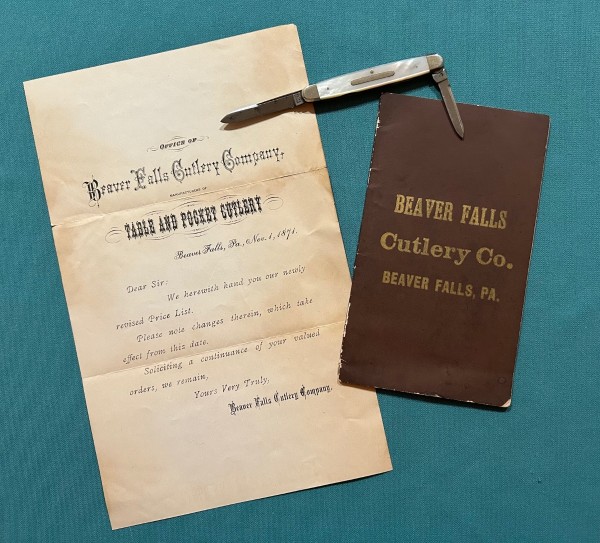 OFFICE OF
Beaver Falls Cutlery Company,
MANUFACTURERS OF
TABLE AND POCKET CUTLERY
Beaver Falls, Pa., Nov. 1, 1871.
Dear Sir:
We herewith hand you our newly
revised Price List.
Please note changes therein, which take
effect from this date.
Soliciting a continuance of your valued
orders, we remain,
Yours Very Truly,
Beaver Falls Cutlery Company.
BEAVER FALLS
Cutlery Co.
BEAVER FALLS, PA.